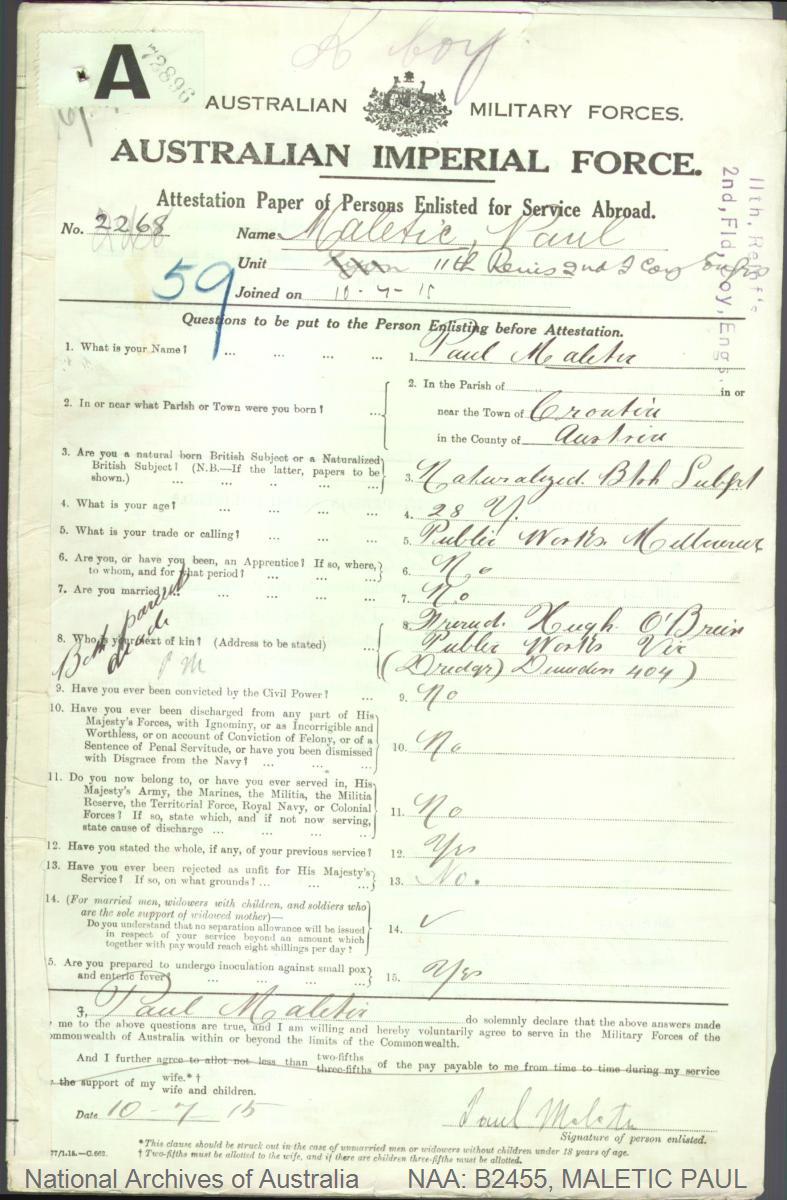 K boy
A
72896
AUSTRALIAN MILITARY FORCES.
AUSTRALIAN IMPERIAL FORCE.
Attestation Paper of Persons Enlisted for Service Abroad.
11th, Reinf's
2nd, Fld, Coy, Engs.
No. 2268
Name Maletic, Paul
Unit 11th Reins 2nd F Coy Engrs
59
Joined on 10-7-15
Questions to be put to the Person Enlisting before Attestation.
1. What is your Name? ... ... ... ... 1. Paul Maletic
2. In or near what Parish or Town were you born? ...
2. In the Parish of in or
near the Town of Croatia
in the County of Austria
3. Are you a natural born British Subject or a Naturalized
British Subject? (N.B.—If the latter, papers to be
shown.) ... ... ... ... ...
3. Naturalized Btsh Subjct
4. What is your age? ... ... ... ... 4. 28 Y.
5. What is your trade or calling? ... ... ... 5. Public Works Melbourne
6. Are you, or have you been, an Apprentice? If so, where,
to whom, and for what period? ... ... ...
6. No
7. Are you married? ... ... ... ... 7. No
Both parents
dead
8. Who is your next of kin? (Address to be stated) ...
8. Friend. Hugh O'Brein
Public Works Vic
(Dredgr) Dumdon 404)
9. Have you ever been convicted by the Civil Power? ... 9. No
10. Have you ever been discharged from any part of His
Majesty's Forces, with Ignominy, or as Incorrigible and
Worthless, or on account of Conviction of Felony, or of a
Sentence of Penal Servitude, or have you been dismissed
with Disgrace from the Navy? ... ... ...
10. No
11. Do you now belong to, or have you ever served in, His
Majesty's Army, the Marines, the Militia, the Militia
Reserve, the Territorial Force, Royal Navy, or Colonial
Forces? If so, state which, and if not now serving,
state cause of discharge ... ... ... ...
11. No
12. Have you stated the whole, if any, of your previous service? 12. Yes
13. Have you ever been rejected as unfit for His Majesty's
Service? If so, on what grounds? ... ... ...
13. No.
14. (For married men, widowers with children, and soldiers who
are the sole support of widowed mother)—
Do you understand that no separation allowance will be issued
in respect of your service beyond an amount which
together with pay would reach eight shillings per day?
14. ✓
5. Are you prepared to undergo inoculation against small pox
and enteric fever? ... ... ... ...
15. Yes
I, Paul Maletic do solemnly declare that the above answers made
me to the above questions are true, and I am willing and hereby voluntarily agree to serve in the Military Forces of the
ommonwealth of Australia within or beyond the limits of the Commonwealth.
And I further agree to allot not less than two-fifths three-fifths of the pay payable to me from time to time during my service
the support of my wife.* † wife and children.
Date 10-7-15
Paul Maletic
Signature of person enlisted.
*This clause should be struck out in the case of unmarried men or widowers without children under 18 years of age.
† Two-fifths must be allotted to the wife, and if there are children three-fifths must be allotted.
77/1.15.—C.662.
National Archives of Australia NAA: B2455, MALETIC PAUL